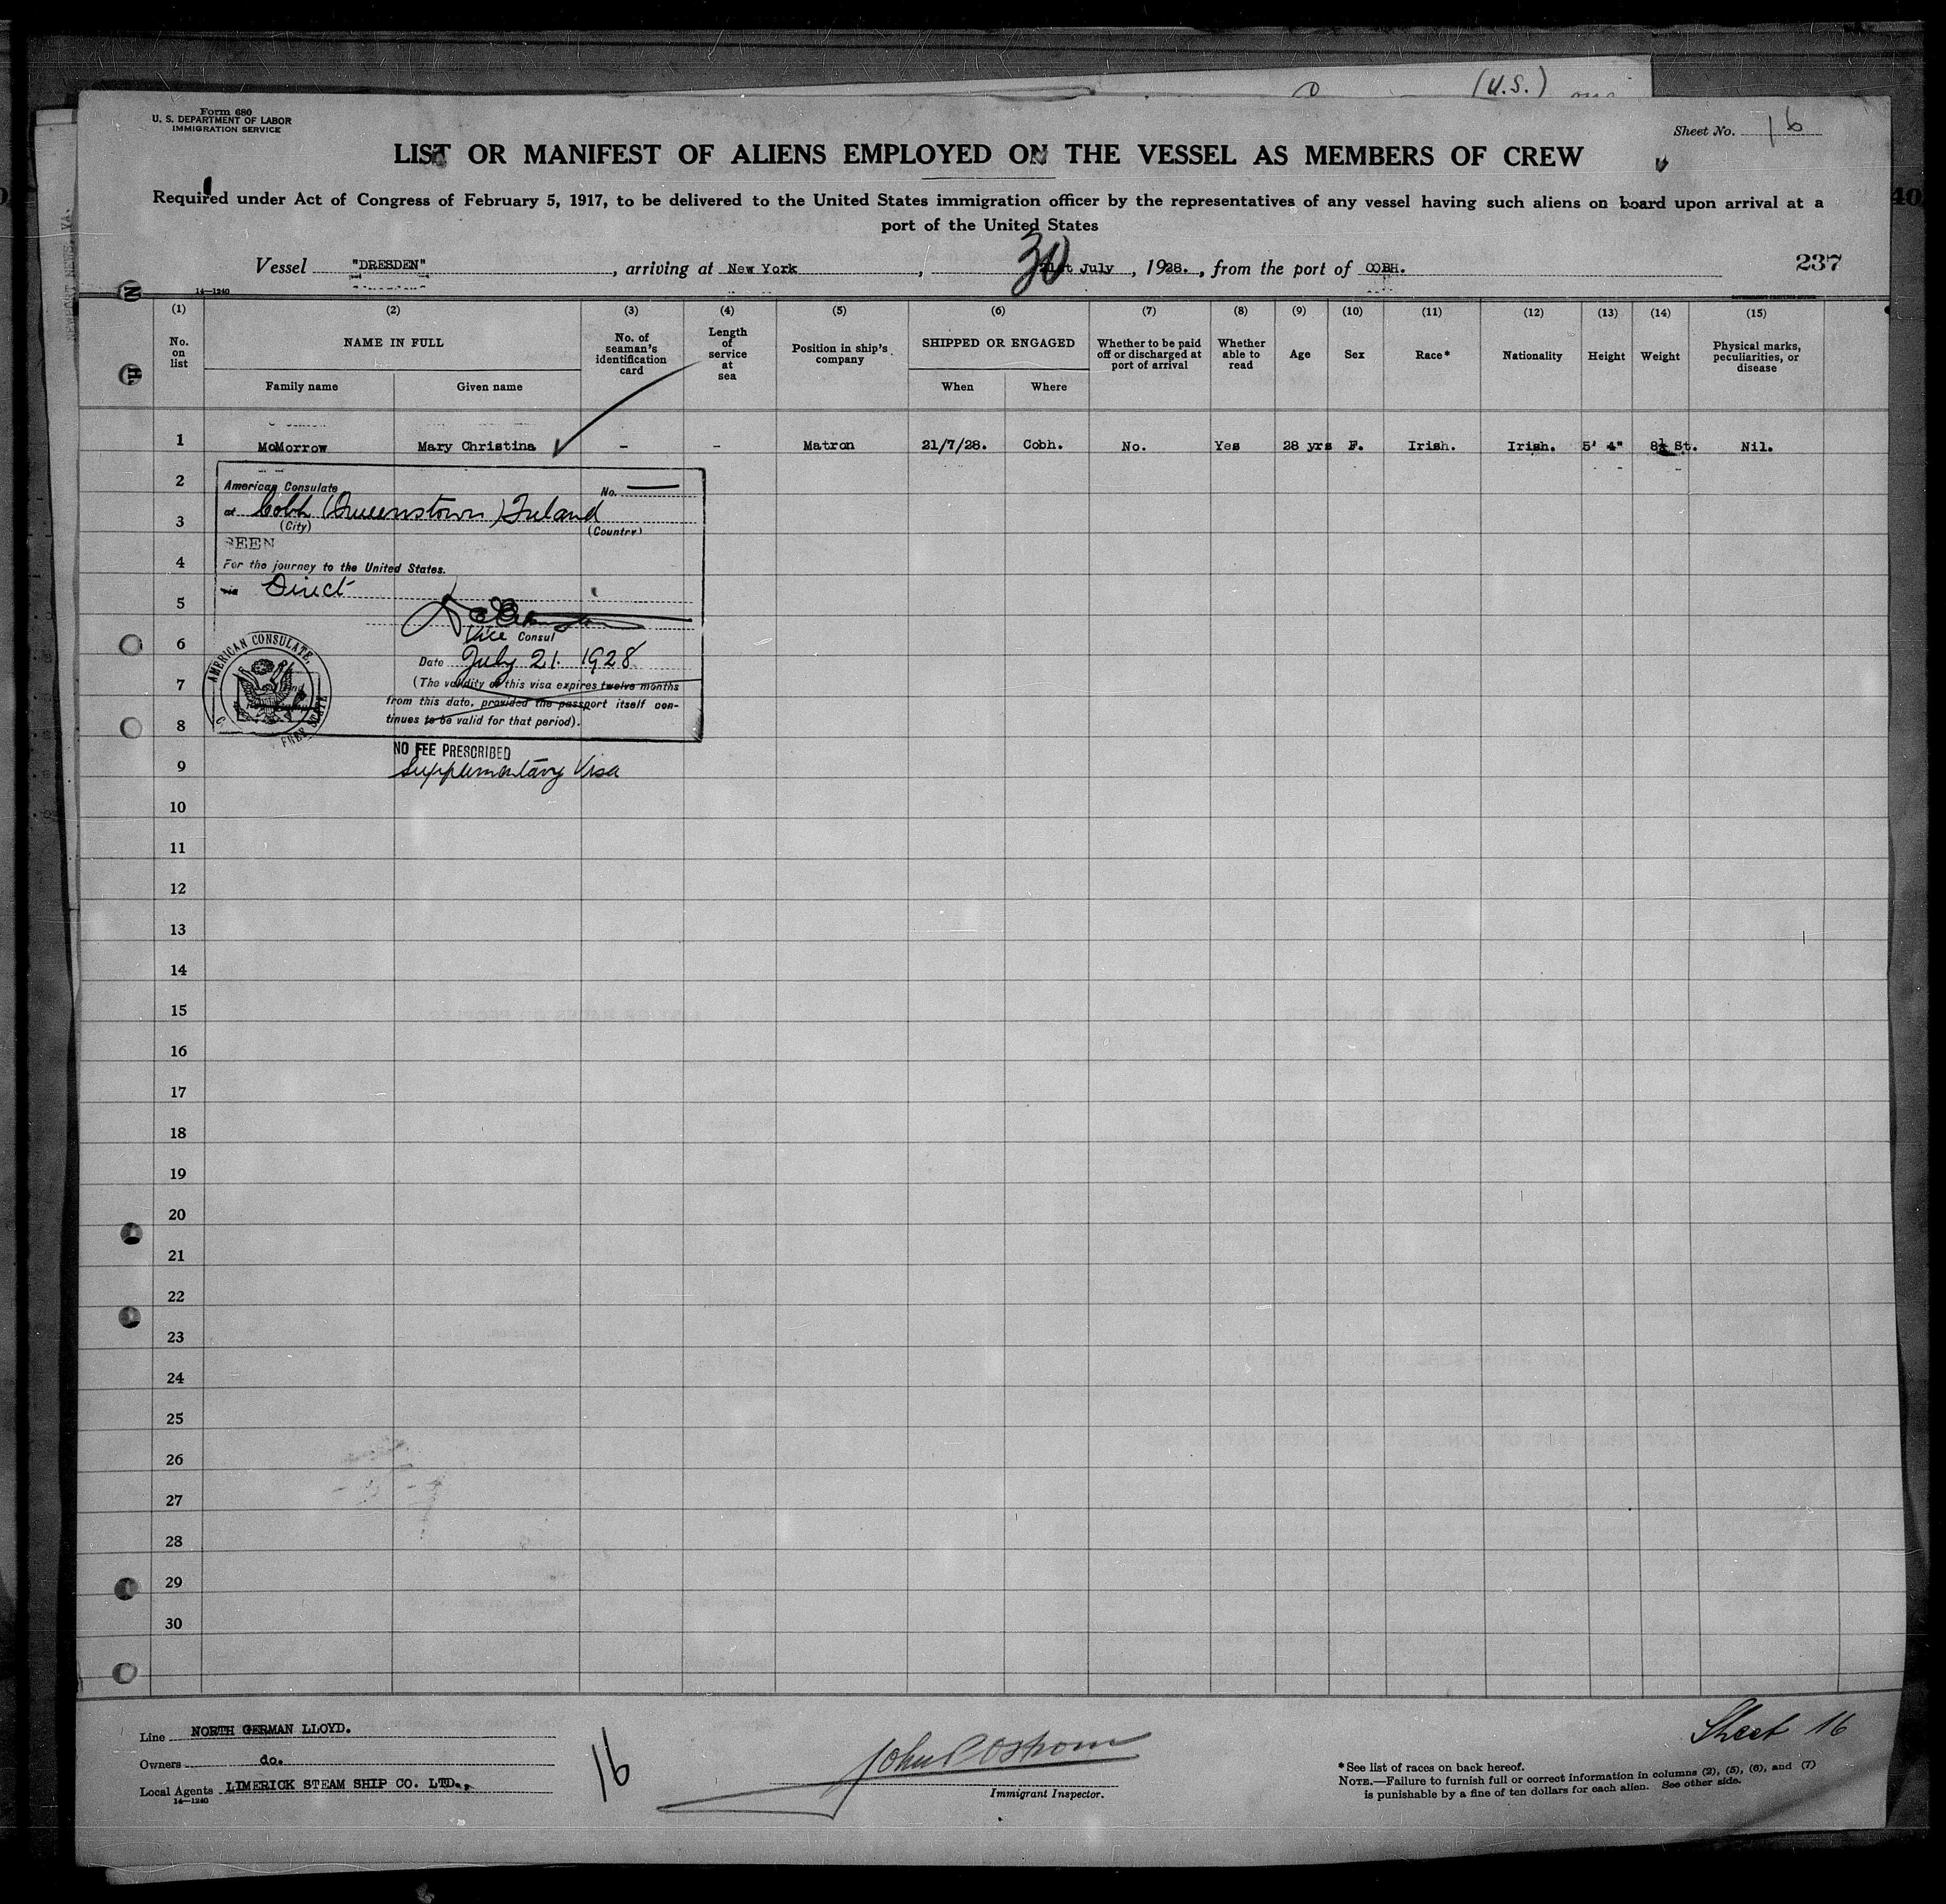 (U.S.)
Form 680
U. S. DEPARTMENT OF LABOR
IMMIGRATION SERVICE
Sheet No. 16
LIST OR MANIFEST OF ALIENS EMPLOYED ON THE VESSEL AS MEMBERS OF CREW
Required under Act of Congress of February 5, 1917, to be delivered to the United States immigration officer by the representatives of any vessel having such aliens on board upon arrival at a
port of the United States
Vessel "DRESDEN", arriving at New York, 30 21st July, 1928., from the port of COBH. 237
14—1240
(1) (2) (3) (4) (5) (6) (7) (8) (9) (10) (11) (12) (13) (14) (15)
No. on list
NAME IN FULL
Family name
Given name
No. of seaman's identification card
Length of service at sea
Position in ship's company
SHIPPED OR ENGAGED
When
Where
Whether to be paid off or discharged at port of arrival
Whether able to read
Age
Sex
Race*
Nationality
Height
Weight
Physical marks, peculiarities, or disease
1 McMorrow Mary Christina – – Matron 21/7/28. Cobh. No. Yes 28 yrs F. Irish. Irish. 5' 4" 8½ St. Nil.
2
3
4
5
6
7
8
9
10
11
12
13
14
15
16
17
18
19
20
21
22
23
24
25
26
27
28
29
30
American Consulate No. —
at Cobh (Queenstown) Ireland
(City) (Country)
SEEN
For the journey to the United States.
via Direct
Vice Consul
Date July 21. 1928
(The validity of this visa expires twelve months
from this date, provided the passport itself con-
tinues to be valid for that period).
AMERICAN CONSULATE,
FREE STATE
NO FEE PRESCRIBED
Supplementary Visa
Line NORTH GERMAN LLOYD.
Owners do.
Local Agents LIMERICK STEAM SHIP CO. LTD.,
14—1240
16
John P Ostrom
Immigrant Inspector.
Sheet 16
*See list of races on back hereof.
NOTE.—Failure to furnish full or correct information in columns (2), (5), (6), and (7)
is punishable by a fine of ten dollars for each alien. See other side.